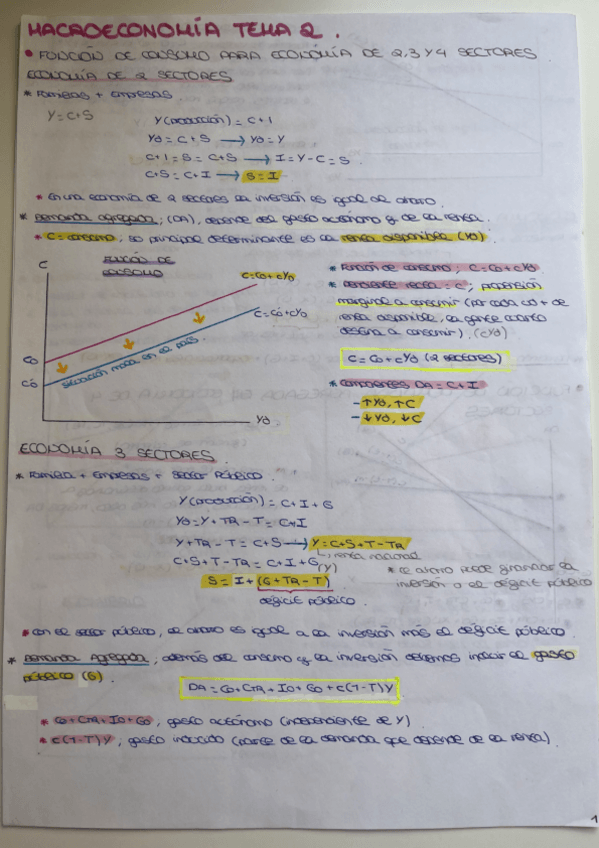 MACROECONOMÍA TEMA 2.
• FUNCIÓN DE CONSUMO PARA ECONOMÍA DE 2,3 Y 4 SECTORES.
ECONOMÍA DE 2 SECTORES
* FAMILIAS + EMPRESAS
Y = C+S
Y(PRODUCCIÓN) = C+I
Yd = C+S → Yd = Y
C+I = S = C+S → I = Y-C = S
C+S = C+I → S = I
* En una economía de 2 sectores la inversión es igual al ahorro.
* Demanda agregada; (DA), depende del gasto autónomo y de la renta.
* C = consumo, su principal determinante es la renta disponible (Yd).
FUNCIÓN DE CONSUMO
C
C = Co + cYd
C = Co + cYd
Co
Co
Situación mala en el país.
Yd.
* Función de consumo; C = Co + cYd
* Pendiente recta = c; propensión
marginal a consumir (por cada ud + de
renta disponible, la gente cuanto
destina a consumir). (cYd)
C = Co + cYd (2 sectores)
* Componentes DA = C+I
- ↑Yd, ↑C
- ↓Yd, ↓C
ECONOMÍA 3 SECTORES.
* Familia + Empresas + Sector Público.
Y(PRODUCCIÓN) = C+I+G
Yd = Y + TR - T = C+I
Y + TR - T = C+S → Y = C+S+T-TR
renta nacional (Y)
C+S+T-TR = C+I+G
S = I + (G+TR-T)
déficit público.
* el ahorro puede financiar la
inversión o el déficit público
* Con el sector público, el ahorro es igual a la inversión más el déficit público.
* Demanda Agregada; además del consumo y la inversión debemos incluir el gasto
público (G).
DA = Co + CTR + Io + Go + c(1-T)Y
* Co + CTR + Io + Go, gasto autónomo (independiente de Y)
* c(1-T)Y, gasto inducido (parte de la demanda que depende de la renta)
1